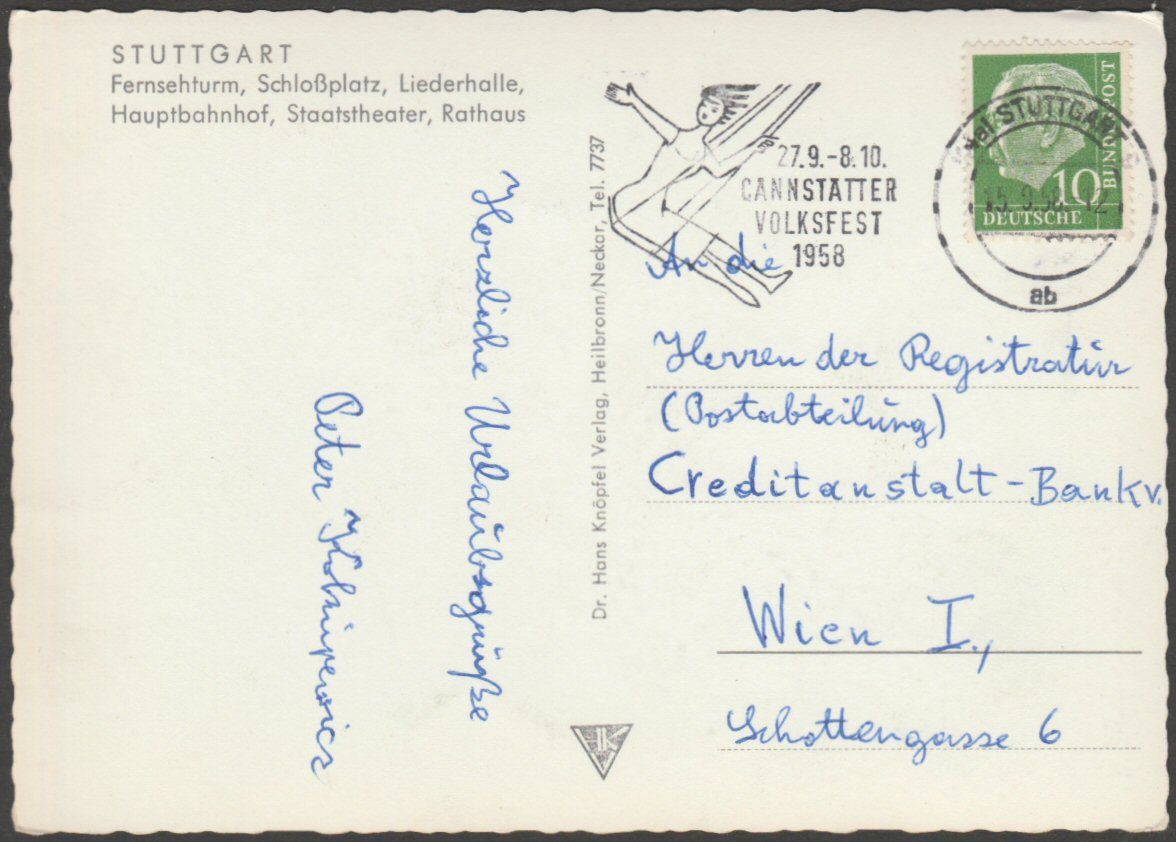 STUTTGART
Fernsehturm, Schloßplatz, Liederhalle,
Hauptbahnhof, Staatstheater, Rathaus
Herzliche Urlaubsgrüße
Peter
Dr. Hans Knöpfel Verlag, Heilbronn/Neckar, Tel. 7737
27.9.-8.10.
CANNSTATTER
VOLKSFEST
1958
STUTTGART
15.9.58
ab
10
DEUTSCHE
BUNDESPOST
An die
Herren der Registratur
(Postabteilung)
Creditanstalt-Bankv.
Wien I.,
Schottengasse 6